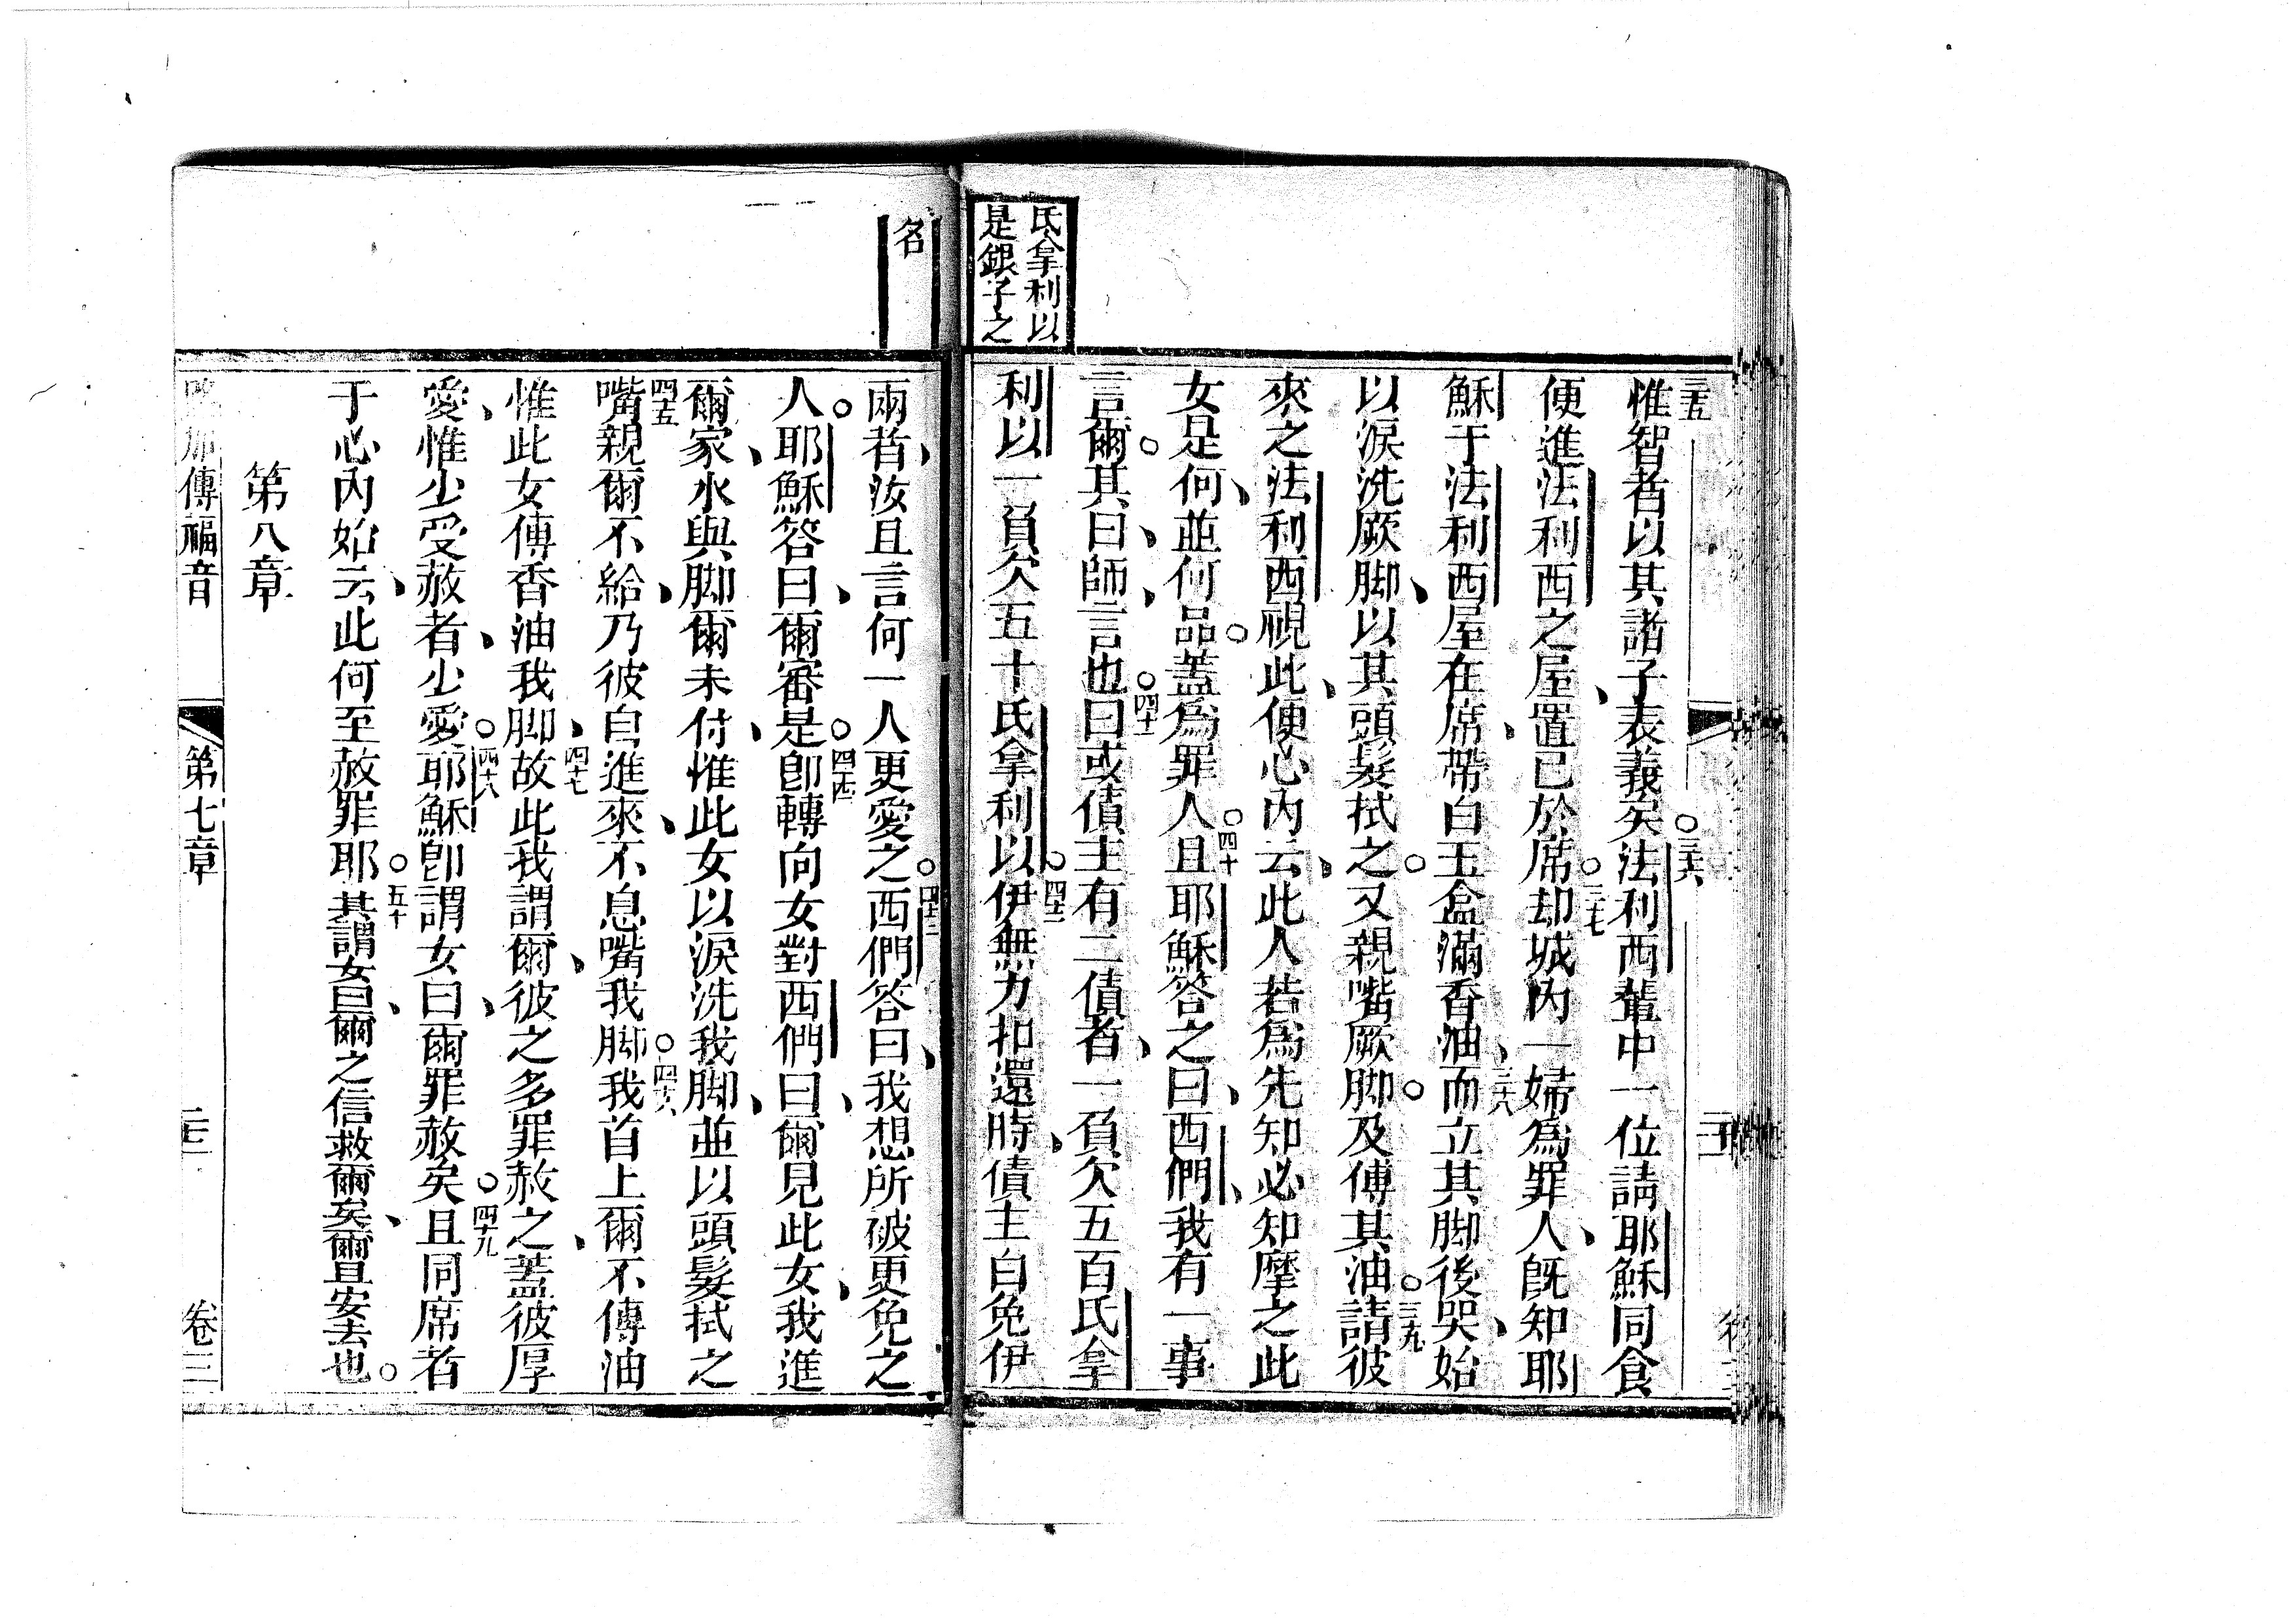 氏拿利以
是銀子之
三五惟智者以其諸子表義矣。三六法利西輩中一位請耶穌同食
便進法利西之屋、置已於席。三七却城內一婦爲罪人、旣知耶
穌于法利西屋在席、帶白玉盒滿香油、三八而立其脚後哭、始
以淚洗厥脚、以其頭髮拭之。又親嘴厥脚。及傅其油。三九請彼
來之法利西視此、便心內云、此人若爲先知必知摩之此
女是何、並何品。蓋爲罪人。四十且耶穌答之曰、西們、我有一事
言爾。其曰、師、言也。四一曰或債主有二債者、一負欠五百氏拿
利以一負欠五十氏拿利以。四二伊無力扣還時、債主白免伊
名
兩者、汝且言何一人更愛之。四三西們答曰、我想所破更免之
人。耶穌答曰、爾審是。四四卽轉向女對西們曰、爾見此女、我進
爾家、水與脚爾未付、惟此女以淚洗我脚、並以頭髮拭之
四五嘴親爾不給、乃彼自進來、不息嘴我脚。四六我首上爾不傅油
惟此女傅香油我脚、四七故此我謂爾、彼之多罪赦之、蓋彼厚
愛、惟少受赦者、少愛。四八耶穌卽謂女曰、爾罪赦矣。四九且同席者
于心內始云、此何至赦罪耶。五十其謂女曰、爾之信救爾矣、爾且安去也。
第八章
傳福音 第七章 卷三